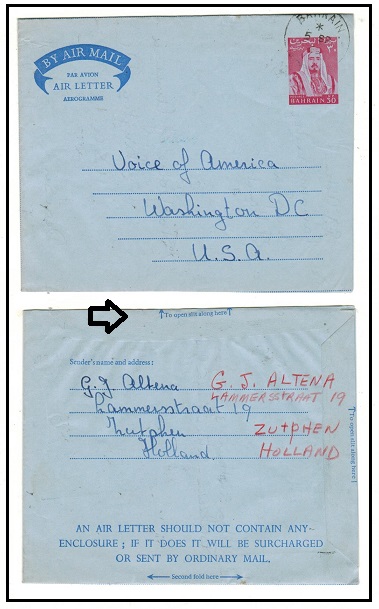 BY AIR MAIL
PAR AVION
AIR LETTER
AEROGRAMME
BAHRAIN
BAHRAIN
Voice of America
Washington DC
U.S.A.
To open slit along here
Sender's name and address:
G.J. Altena
Lammersstraat 19
Zutphen
Holland.
G. J. ALTENA
LAMMERSSTRAAT 19
ZUTPHEN
HOLLAND
To open slit along here
AN AIR LETTER SHOULD NOT CONTAIN ANY
ENCLOSURE; IF IT DOES IT WILL BE SURCHARGED
OR SENT BY ORDINARY MAIL.
Second fold here